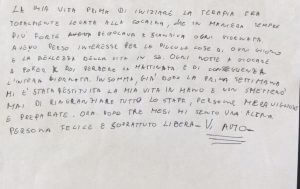 LA MIA VITA PRIMA DI INIZIARE LA TERAPIA ERA
TOTALMENTE LEGATA ALLA COCAINA, CHE IN MANIERA SEMPRE
PIÙ FORTE REGOLAVA E SCANDIVA OGNI GIORNATA
AVEVO PERSO INTERESSE PER LE PICCOLE COSE DI OGNI GIORNO
E LA BELLEZZA DELLA VITA IN SÉ. OGNI NOTTE A GIOCARE
A POKER E POI PERDERE LA MATTINATA E DI CONSEGUENZA
L'INTERA GIORNATA. INSOMMA, GIÀ DOPO LA PRIMA SETTIMANA
MI È STATA RESTITUITA LA MIA VITA IN MANO E NON SMETTERÒ
MAI DI RINGRAZIARE TUTTO LO STAFF, PERSONE MERAVIGLIOSE
E PREPARATE. ORA DOPO TRE MESI MI SENTO UNA ALTRA
PERSONA FELICE E SOPRATTUTTO LIBERA